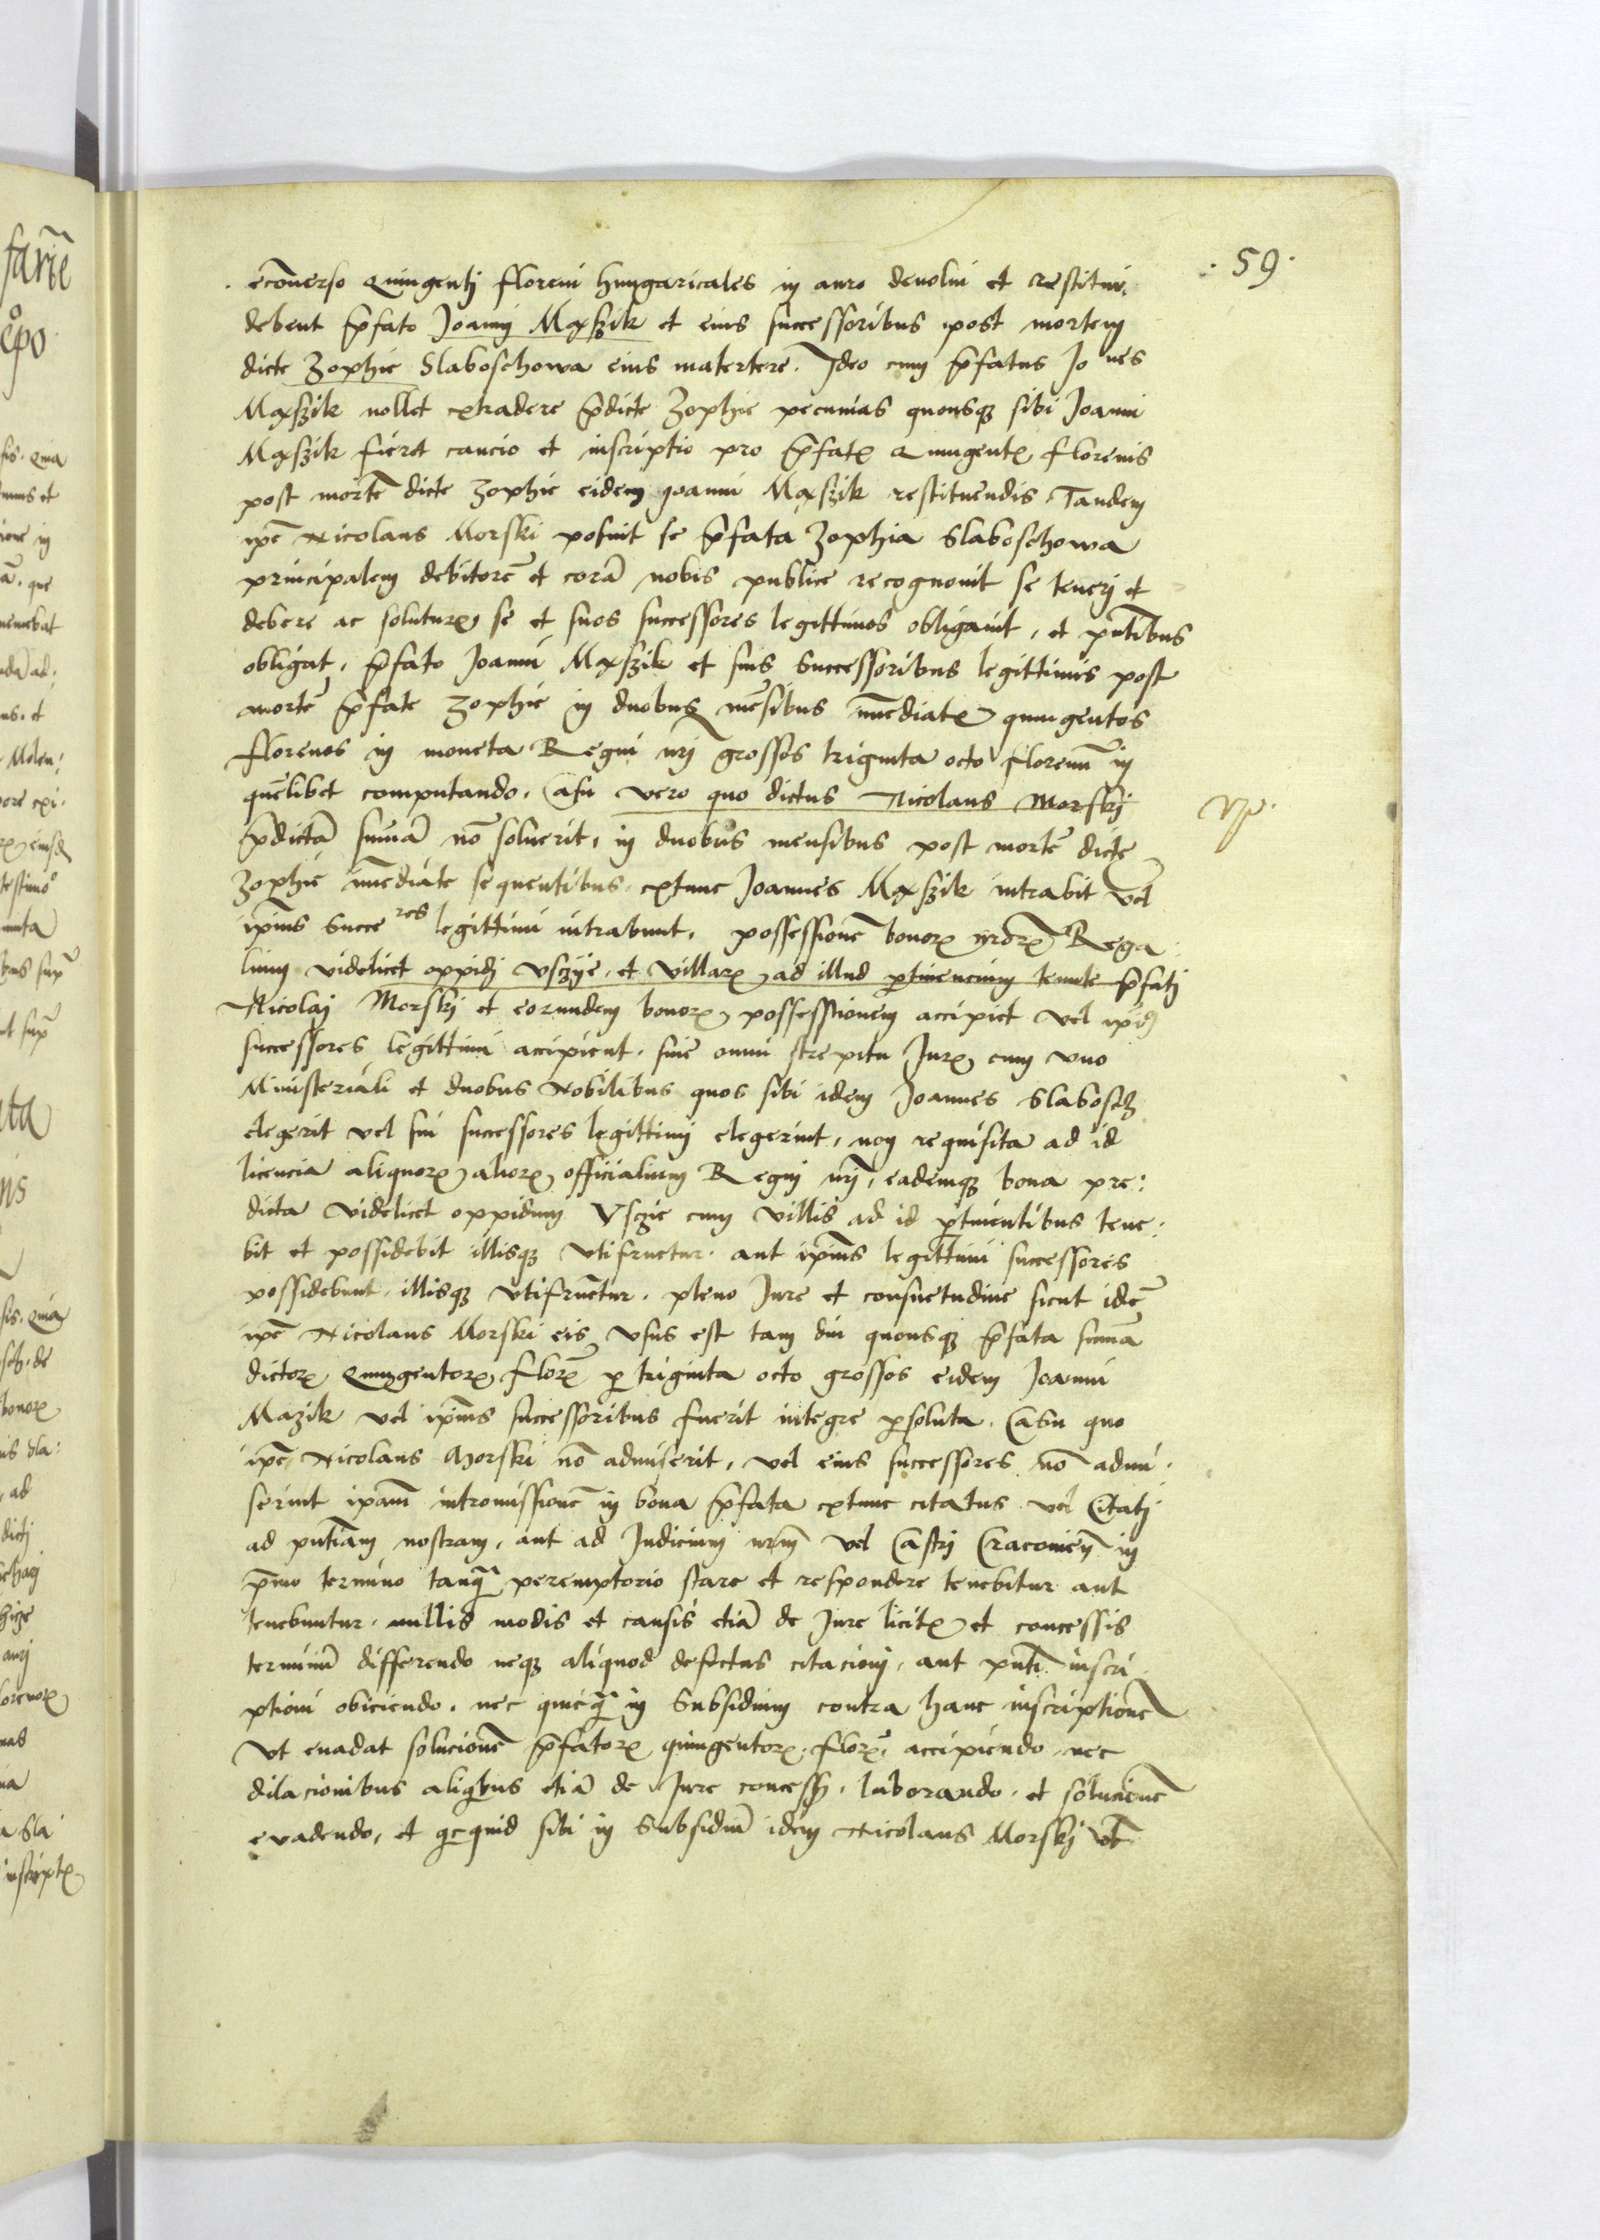 . 59 .
. eco͞nverso Quingentj florenj hungaricales in auro devolui et restitui
debent p̄fato Joanni Maxszik et eius successoribus post mortem
dicte Zophie Slaboschowa eius matertere. Ideo cum p̄fatus Jo nes
Maxszik nollet extradere p̄dicte Zophie pecunias quousqꝫ sibi Joanni
Maxszik fieret caucio et inscriptio pro p̄fatꝭ Quingentꝭ florenis
post mortē dicte Zophie eidem Joanni Maxszik restituendis. Tandem
ip̄e Nicolaus Morski posuit se p̄fata Zophia Slaboschowa
principalem debitorē et corā nobis publice recognouit se tenerj et
debere ac soluturꝭ se et suos successores legittimos obligauit, et pn̄tibus
obligat, p̄fato Joanni Maxszik et suis Successoribus legittimis post
mortē p̄fate Zophie in duobus mēsibus īmediatꝭ quingentos
florenos in moneta Regni nr̄j grossos triginta octo florenū in
quēlibet computando. Casu vero quo dictus Nicolaus Morskj
p̄dictā sūmā nō soluerit, in duobus mensibus post mortē dicte
Zophie īmediate sequentibus. extunc Joannes Maxszik intrabit vel
ip̄ius Succe res legittimi intrabunt, possessionē bonorꝭ nr̄orꝭ Rega
lium videlicet oppidj Usczye, et villarꝭ ad illud ꝑtinencium tenute p̄fatj
Nicolaj Morskj et eorundem bonorꝭ possessionem accipiet vel ip̄iꝰ
successores legittimi accipient. sine omni strepitu Jurꝭ cum uno
Ministeriali et duobus Nobilibus quos sibi idem Joannes Slabosch
elegerit vel sui successores legittimj elegerint, non requisita ad id
licencia aliquorꝭ aliorꝭ officialium Regnj nr̄j, eademqꝫ bona pre:
dicta videlicet oppidum Usczie cum villis ad id ꝑtinentibus tene:
bit et possidebit illisqꝫ utifruetur. aut ip̄ius legittimi successores
possidebunt. illisqꝫ utifruentur. pleno Jure et consuetudine sicut idē
ip̄e Nicolaus Morski eis usus est tam diu quousqꝫ p̄fata sūma
dictorꝭ Quingentorꝭ florꝭ ꝑ triginta octo grossos eidem Joanni
Mazik vel ip̄ius successoribus fuerit integre ꝑsoluta. Casu quo
ip̄e Nicolaus Morski nō admiserit, vel eius successores nō admi
serint ip̄am intromissionē in bona p̄fata extunc citatus vel Citatj
ad pn̄tiam nostram, aut ad Judicium nr̄m vel Castrj Cracouien̄ in
p̄mo termino tanqꝫ peremptorio stare et respondere tenebitur aut
tenebuntur. nullis modis et causis etiā de Jure licitꝭ et concessis
terminū differendo neqꝫ aliquod defectus citacionj, aut pn̄ti inscri
ptioni obiciendo. nec quicqꝫ in Subsidium contra hanc inscriptionē
Ut euadat solucionē p̄fatorꝭ quingentorꝭ florꝭ, accipiendo nec
dilacionibus aliqbus etiā de Jure concessꝭ. laborando. et solucionē
evadendo, et qcquid sibi in Subsidiū idem Nicolaus Morskj vt̄